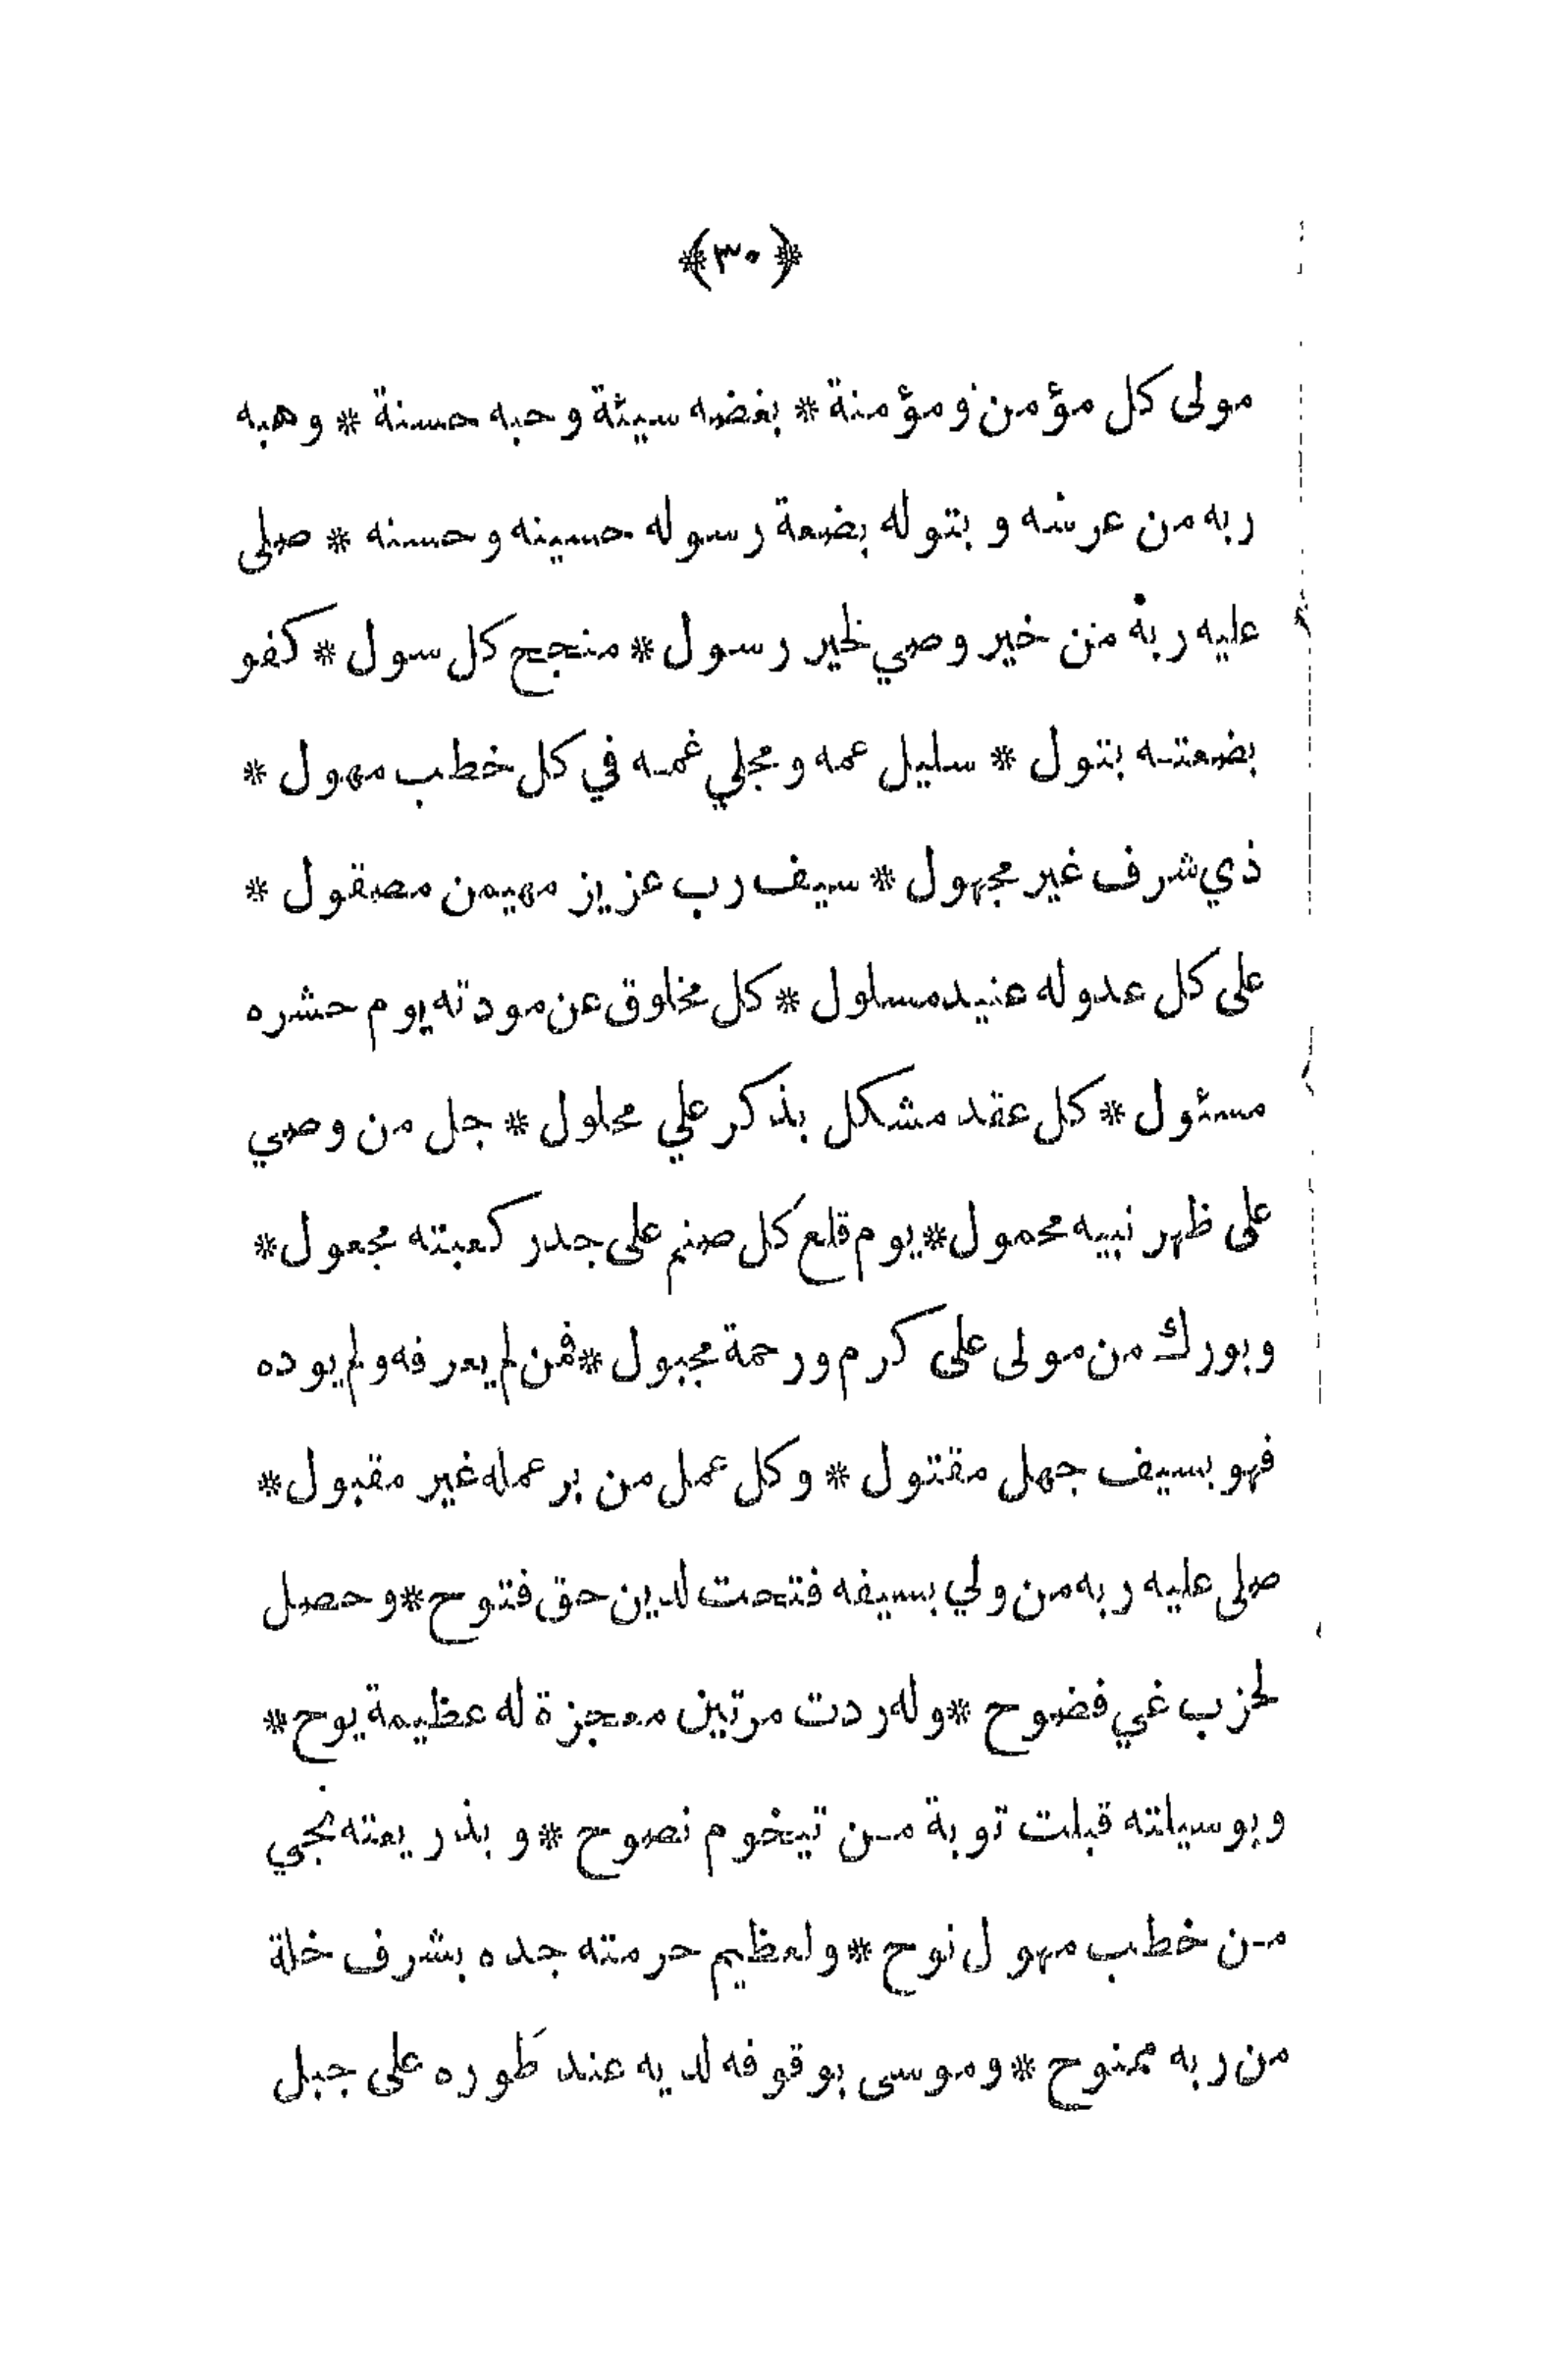 ﴿٣٠﴾
مولى كل مؤمن ومؤمنة * بغضه سيئة وحبه حسنة * وهبه
ربه من عرشه وبتوله بضعة رسوله حسينه وحسنه * صلى
عليه ربه من خير وصي لخير رسول * منجح كل سول * كفو
بضعته بتول * سليل عمه ومجلي غمه في كل خطب مهول *
ذي شرف غير مجهول * سيف رب عزيز مهيمن مصقول *
على كل عدو له عنيد مسلول * كل مخلوق عن مودته يوم حشره
مسئول * كل عقد مشكل بذكر علي محلول * جل من وصي
على ظهر نبيه محمول * يوم قلع كل صنم على جدر كعبته مجعول *
وبورك من مولى على كرم ورحمة مجبول * فمن لم يعرفه ولم يوده
فهو بسيف جهل مقتول * وكل عمل من بر عمله غير مقبول *
صلى عليه ربه من ولي بسيفه فتحت لدين حق فتوح * وحصل
لحزب غي فضوح * وله ردت مرتين معجزة له عظيمة يوح *
وبوسيلته قبلت توبة من تيخوم نصوح * وبذريعته نجي
من خطب مهول نوح * ولعظيم حرمته جده بشرف خلة
من ربه ممنوح * وموسى بوقوفه لديه عند طوره على جبل